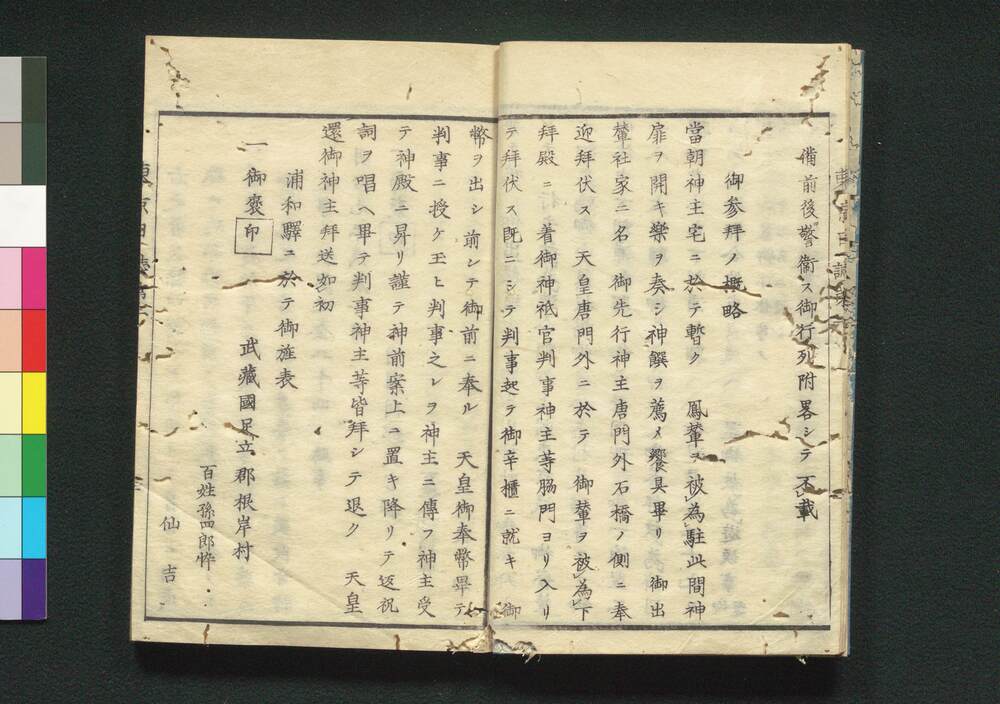 備前後警衞ス御行列附畧シテ不載
御参拜ノ概略
當朝神主宅ニ於テ暫ク　鳳輦ヲ被為駐此間神
扉ヲ開キ樂ヲ奏シ神饌ヲ薦メ饗具畢リ　御出
輦社家二名　御先行神主唐門外石橋ノ側ニ奉
迎拜伏ス　天皇唐門外ニ於テ　御輦ヲ被為下
拜殿ニ行　着御神祇官判事神主等脇門ヨリ入リ
テ拜伏ス既ニシテ判事起テ御辛櫃ニ就キ　御
幣ヲ出シ前シテ御前ニ奉ル　天皇御奉幣畢テ
判事ニ授ケ玉ヒ判事之レヲ神主ニ傳フ神主受
テ神殿ニ昇リ謹テ神前案上ニ置キ降リテ返祝
詞ヲ唱ヘ畢テ判事神主等皆拜シテ退ク　天皇
還御神主拜送如初
浦和驛ニ於テ御旌表
一御褒印　武藏國足立郡根岸村
百姓孫四郎忰
仙吉